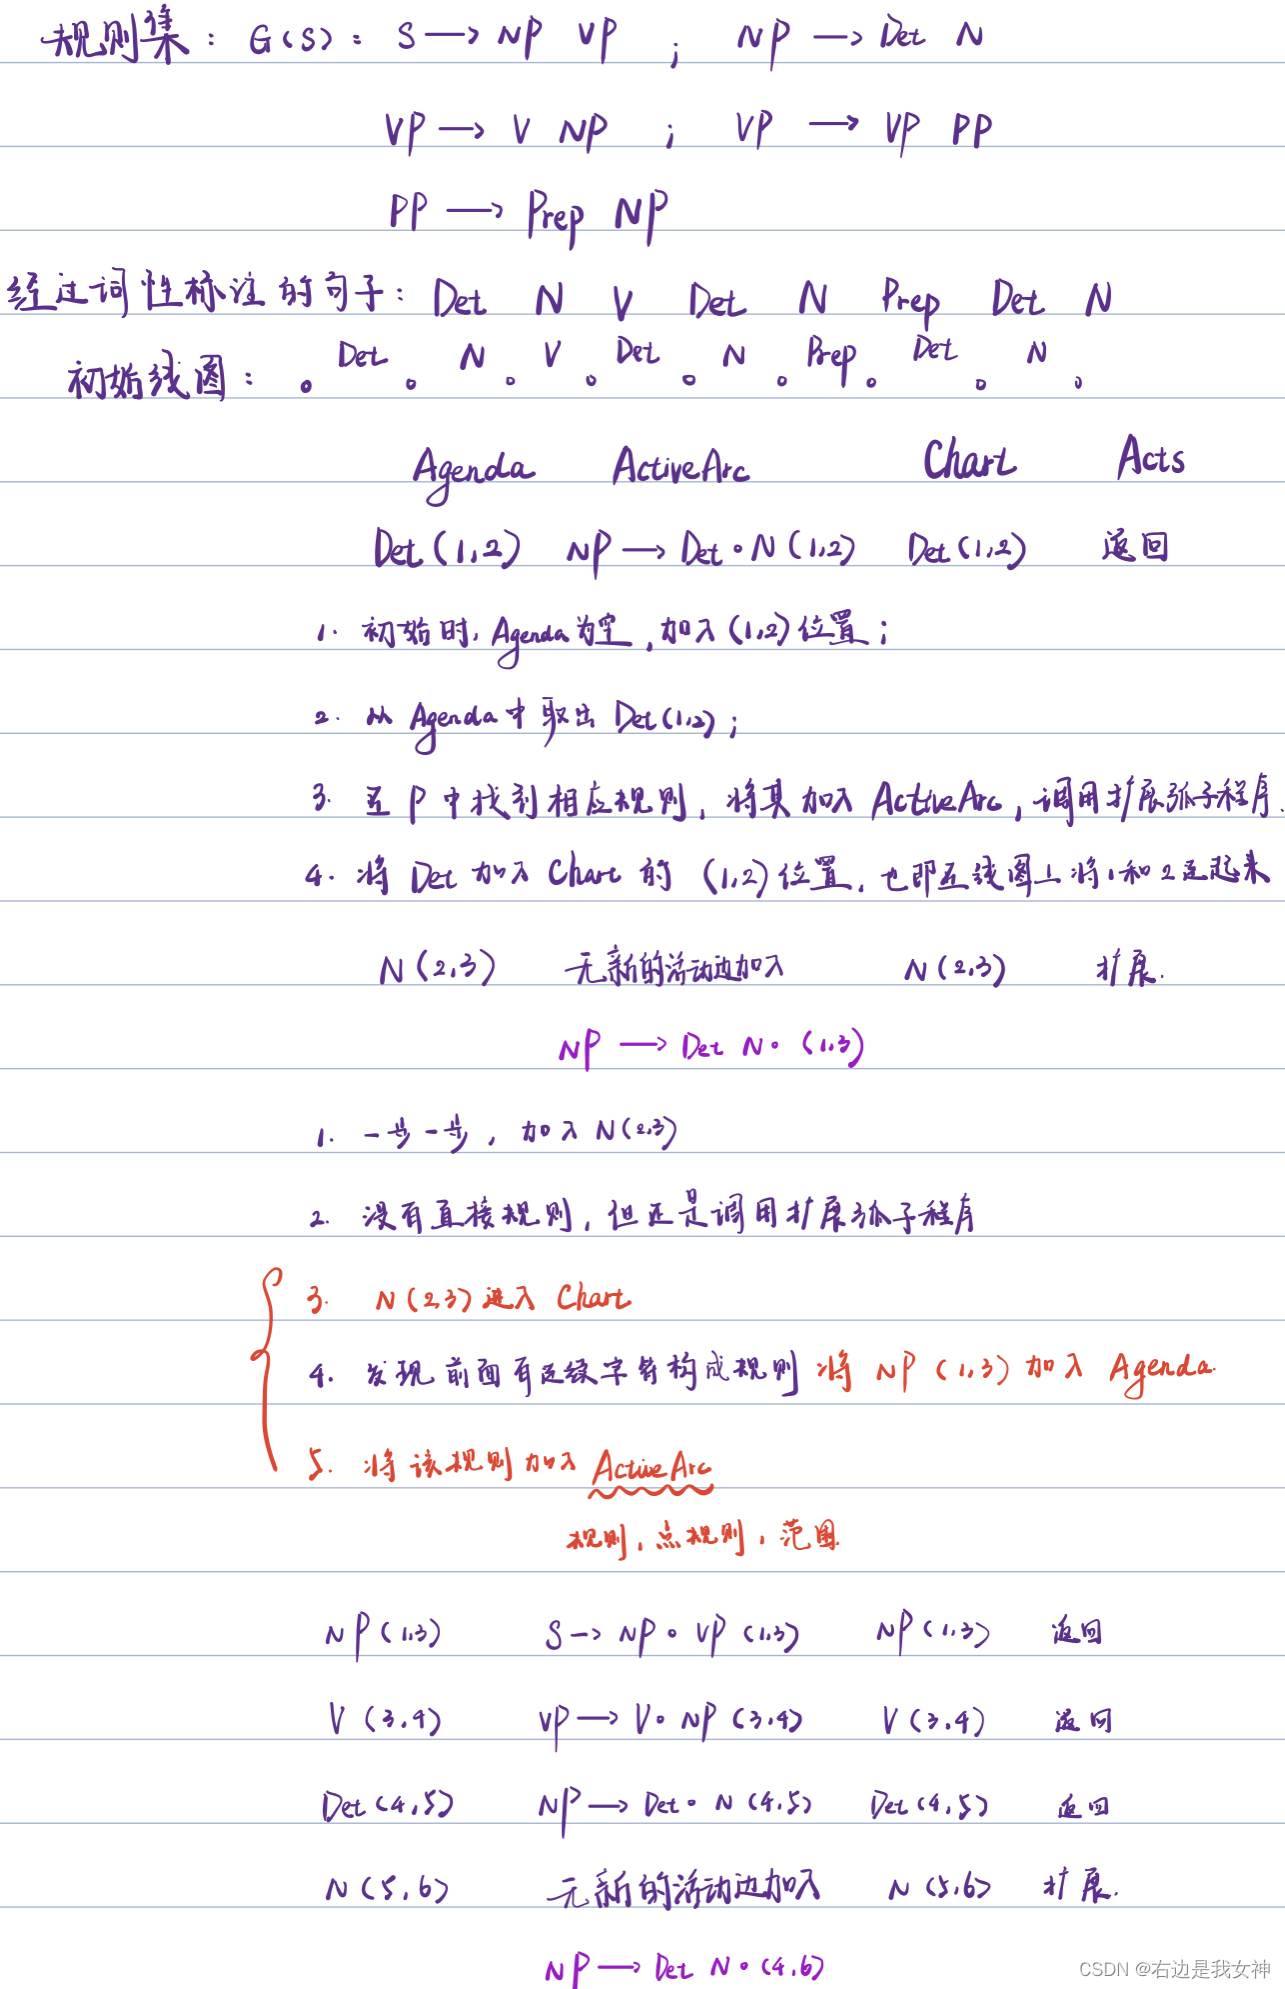 规则集： G(S)： S → NP VP ； NP → Det N
VP → V NP ； VP → VP PP
PP → Prep NP
经过词性标注的句子： Det N V Det N Prep Det N
初始线图： 。 Det 。 N 。 V 。 Det 。 N 。 Prep 。 Det 。 N 。
Agenda ActiveArc Chart Acts
Det(1,2) NP → Det 。N(1,2) Det(1,2) 返回
1. 初始时, Agenda为空,加入(1,2)位置；
2. 从 Agenda中取出 Det(1,2)；
3. 在P中找到相应规则，将其加入 ActiveArc，调用扩展弧子程序.
4. 将 Det 加入 Chart 的 (1,2)位置，也即在线图上将1和2连起来
N(2,3) 无新的活动边加入 N(2,3) 扩展.
NP → Det N。(1,3)
1. 一步一步，加入 N(2,3)
2. 没有直接规则，但还是调用扩展弧子程序
3. N(2,3)进入 Chart
4. 发现前面有连续字符构成规则 将 NP(1,3)加入 Agenda.
5. 将该规则加入 ActiveArc
规则，点规则，范围.
NP(1,3) S → NP 。VP(1,3) NP(1,3) 返回
V(3,4) VP → V。NP(3,4) V(3,4) 返回
Det(4,5) NP → Det 。N(4,5) Det(4,5) 返回
N(5,6) 无新的活动边加入 N(5,6) 扩展.
NP → Det N。(4,6)
CSDN @右边是我女神